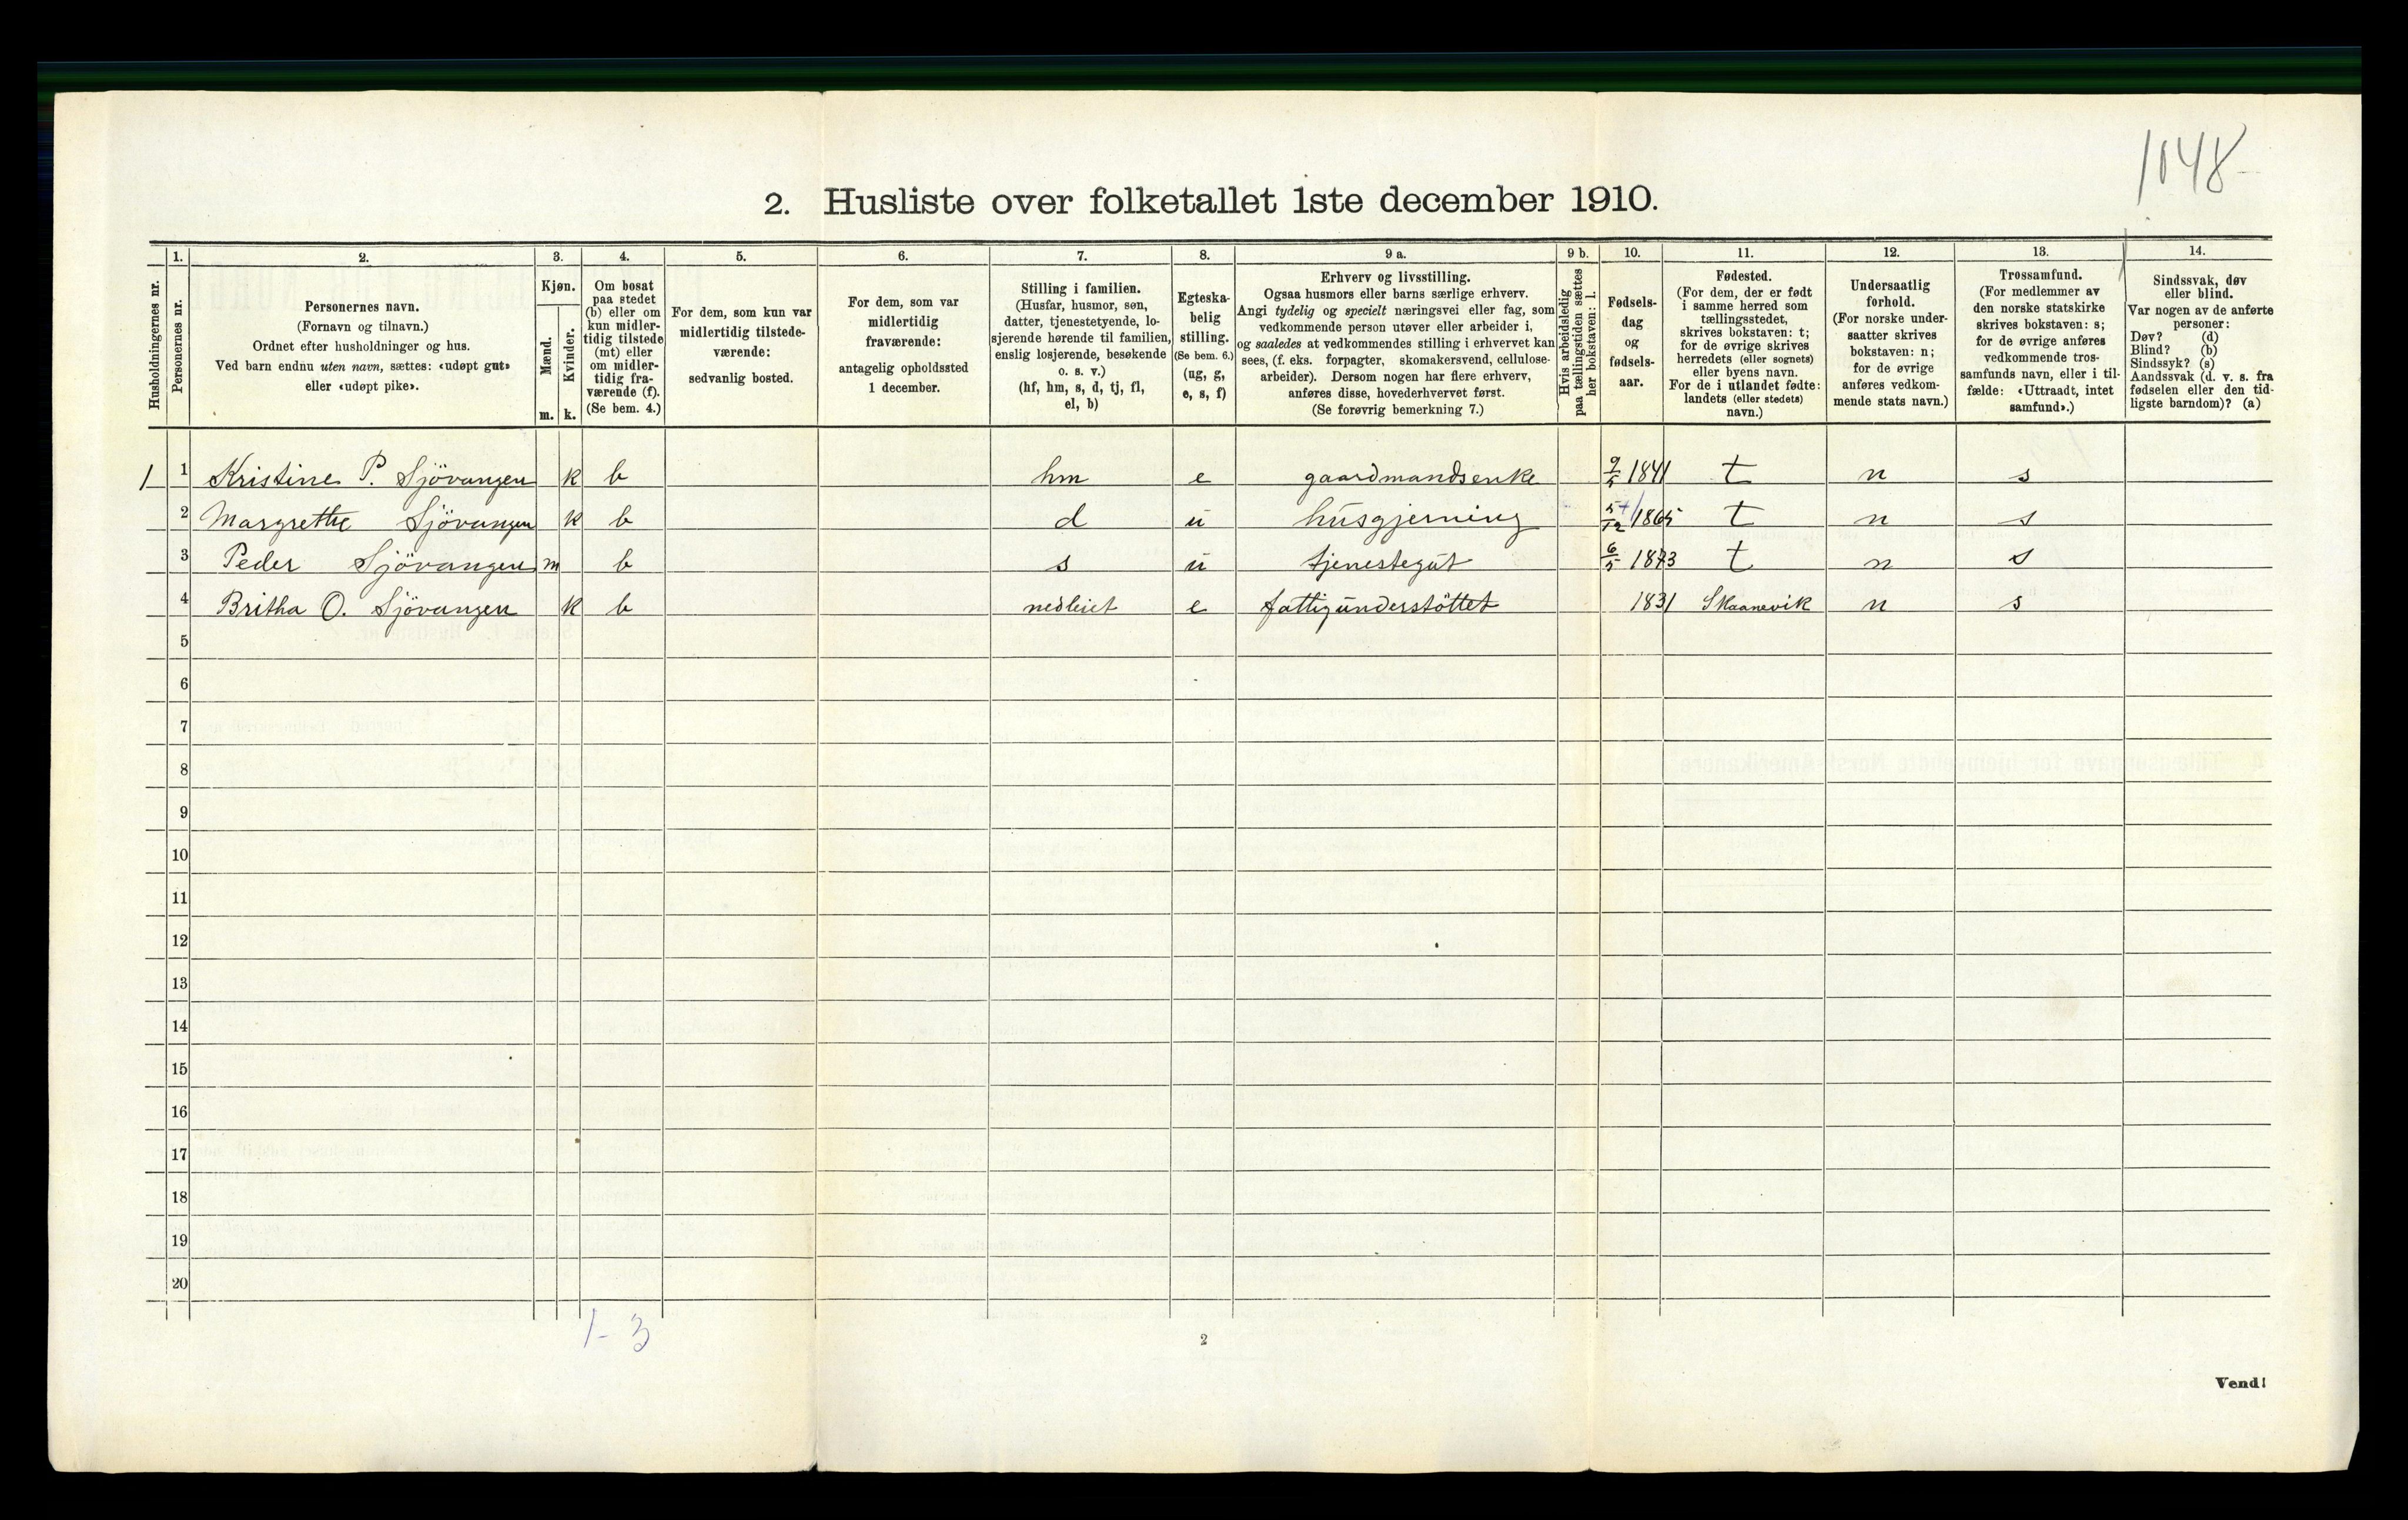 1048
2. Husliste over folketallet 1ste december 1910.
Husholdningernes nr.
1.
Personernes nr.
2.
Personernes navn.
(Fornavn og tilnavn.)
Ordnet efter husholdninger og hus.
Ved barn endnu uten navn, sættes: «udøpt gut»
eller «udøpt pike».
3.
Kjøn.
Mænd.
m.
Kvinder.
k.
4.
Om bosat
paa stedet
(b) eller om
kun midler-
tidig tilstede
(mt) eller
om midler-
tidig fra-
værende (f).
(Se bem. 4.)
5.
For dem, som kun var
midlertidig tilstede-
værende:
sedvanlig bosted.
6.
For dem, som var
midlertidig
fraværende:
antagelig opholdssted
1 december.
7.
Stilling i familien.
(Husfar, husmor, søn,
datter, tjenestetyende, lo-
sjerende hørende til familien,
enslig losjerende, besøkende
o. s. v.)
(hf, hm, s, d, tj, fl,
el, b)
8.
Egteska-
belig
stilling.
(Se bem. 6.)
(ug, g,
e, s, f)
9 a.
Erhverv og livsstilling.
Ogsaa husmors eller barns særlige erhverv.
Angi tydelig og specielt næringsvei eller fag, som
vedkommende person utøver eller arbeider i,
og saaledes at vedkommendes stilling i erhvervet kan
sees, (f. eks. forpagter, skomakersvend, cellulose-
arbeider). Dersom nogen har flere erhverv,
anføres disse, hovederhvervet først.
(Se forøvrig bemerkning 7.)
9 b.
Hvis arbeidsledig
paa tællingstiden sættes
her bokstaven: l.
10.
Fødsels-
dag
og
fødsels-
aar.
11.
Fødested.
(For dem, der er født
i samme herred som
tællingsstedet,
skrives bokstaven: t;
for de øvrige skrives
herredets (eller sognets)
eller byens navn.
For de i utlandet fødte:
landets (eller stedets)
navn.)
12.
Undersaatlig
forhold.
(For norske under-
saatter skrives
bokstaven: n;
for de øvrige
anføres vedkom-
mende stats navn.)
13.
Trossamfund.
(For medlemmer av
den norske statskirke
skrives bokstaven: s;
for de øvrige anføres
vedkommende tros-
samfunds navn, eller i til-
fælde: «Uttraadt, intet
samfund».)
14.
Sindssvak, døv
eller blind.
Var nogen av de anførte
personer:
Døv? (d)
Blind? (b)
Sindssyk? (s)
Aandssvak (d. v. s. fra
fødselen eller den tid-
ligste barndom)? (a)
1 1 Kristine P. Sjövangen k b hm e gaardmandsenke 9/5 1841 t n s
2 Margrethe Sjövangen k b d u husgjerning 5/12 1865 t n s
3 Peder Sjövangen m b s u tjenestegut 6/5 1873 t n s
4 Britha O. Sjövangen k b nedleiet e fattigunderstöttet 1831 Skaanevik n s
5
6
7
8
9
10
11
12
13
14
15
16
17
18
19
20
1-3
2
Vend!